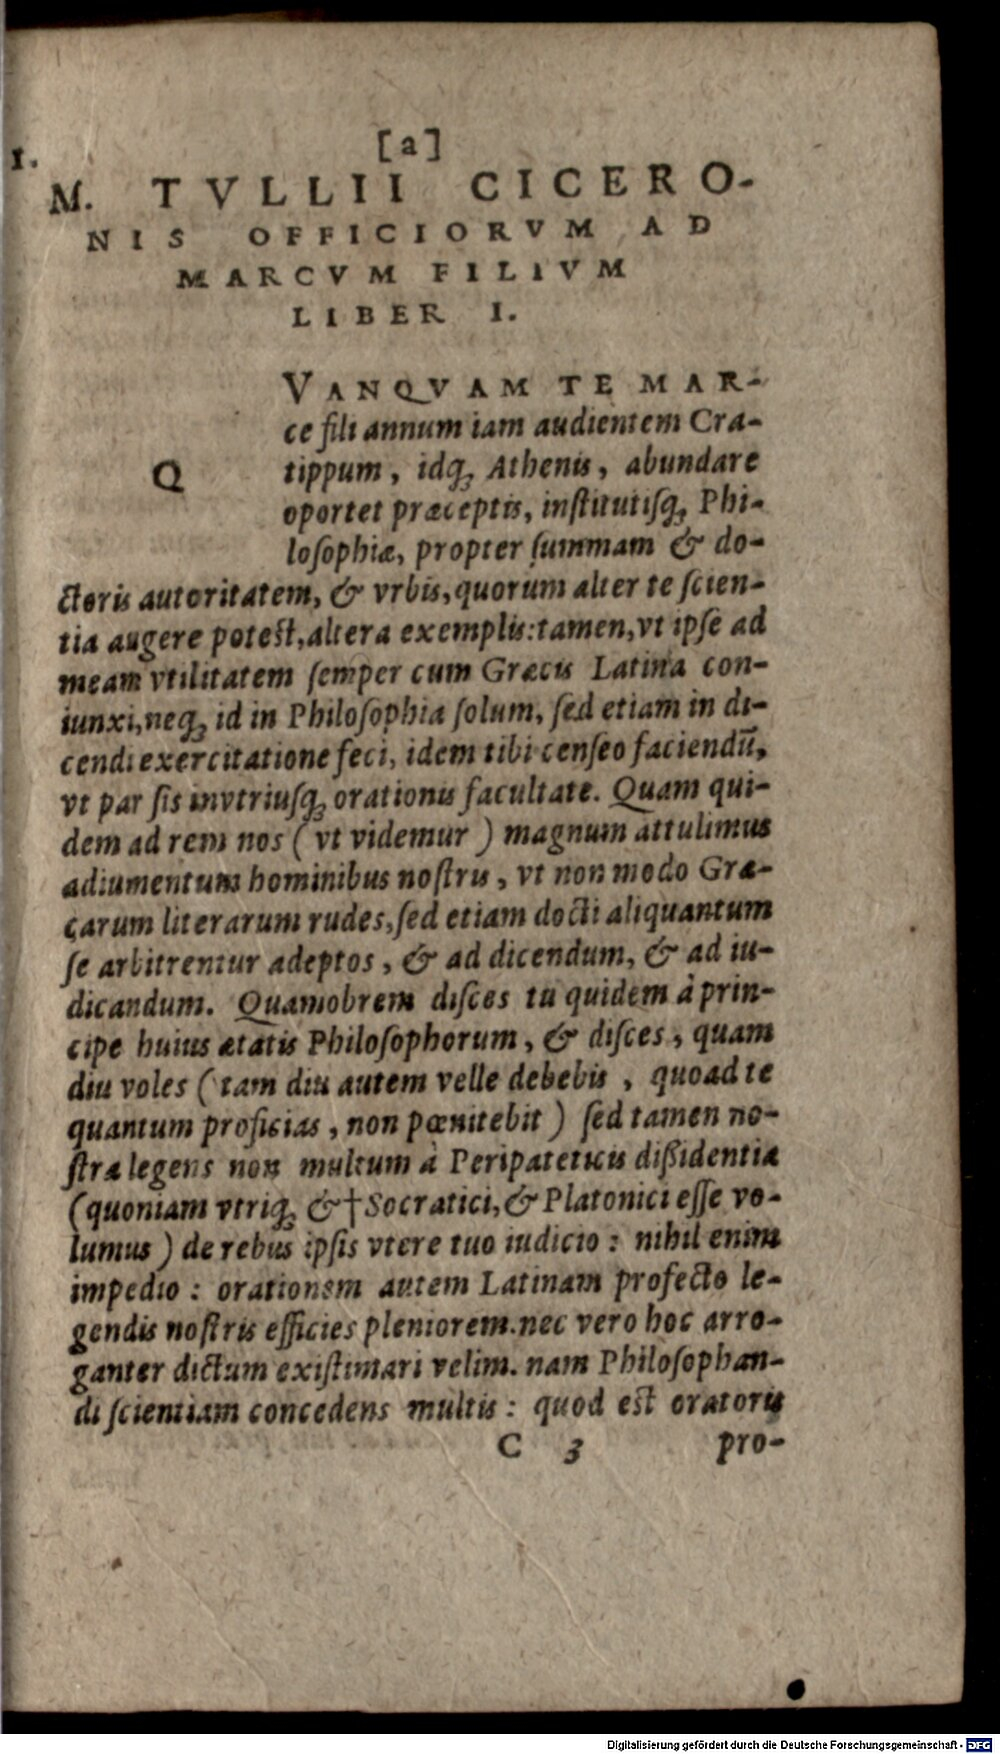 [a]
1.
M. TVLLII CICERO-
NIS OFFICIORVM AD
MARCVM FILIVM
LIBER I.
QVANQVAM TE MAR-
ce fili annum iam audientem Cra-
tippum, idq; Athenis, abundare
oportet præceptis, institutisq; Phi-
losophiæ, propter summam & do-
ctoris autoritatem, & vrbis, quorum alter te scien-
tia augere potest, altera exemplis: tamen, vt ipse ad
meam vtilitatem semper cum Græcis Latina con-
iunxi, neq; id in Philosophia solum, sed etiam in di-
cendi exercitatione feci, idem tibi censeo faciendū,
vt par sis invtriusq; orationis facultate. Quam qui-
dem ad rem nos ( vt videmur ) magnum attulimus
adiumentum hominibus nostris, vt non modo Græ-
carum literarum rudes, sed etiam docti aliquantum
se arbitrentur adeptos, & ad dicendum, & ad iu-
dicandum. Quamobrem disces tu quidem à prin-
cipe huius ætatis Philosophorum, & disces, quam
diu voles ( tam diu autem velle debebis, quoad te
quantum proficias, non pœnitebit ) sed tamen no-
stra legens non multum à Peripateticis dißidentia
(quoniam vtriq; & † Socratici, & Platonici esse vo-
lumus ) de rebus ipsis vtere tuo iudicio : nihil enim
impedio : orationem autem Latinam profecto le-
gendis nostris efficies pleniorem. nec vero hoc arro-
ganter dictum existimari velim. nam Philosophan-
di scientiam concedens multis : quod est oratoris
C 3 pro-
Digitalisierung gefördert durch die Deutsche Forschungsgemeinschaft - DFG